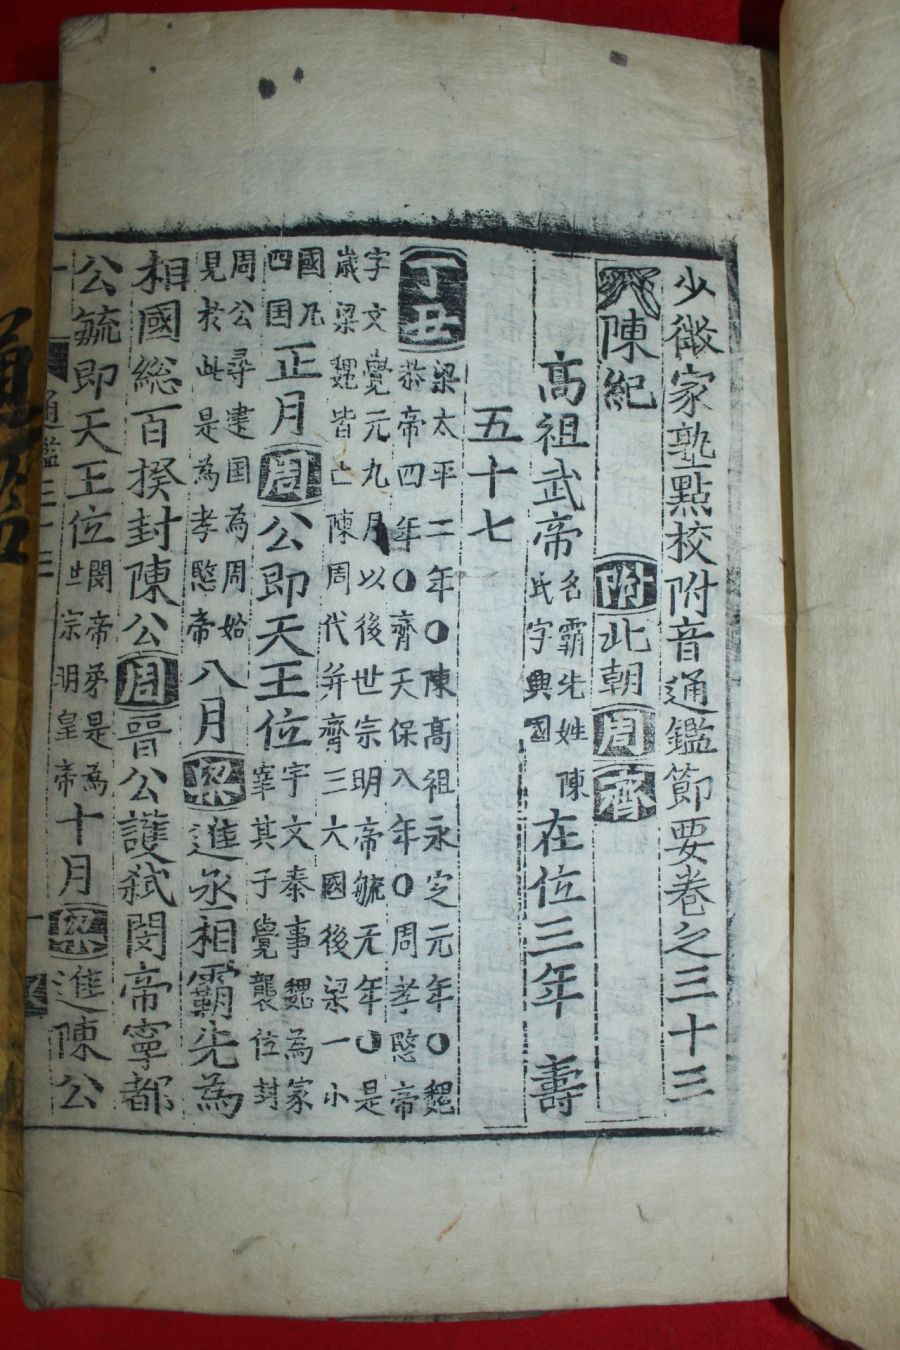 少微家塾點校附音通鑑節要卷之三十三
陳紀 附 北朝 周 齊
高祖武帝 名霸先姓陳氏字興國 在位三年 壽
五十七
丁丑 梁太平二年○陳高祖永定元年○魏恭帝四年○齊天保八年○周孝愍帝
宇文覺元九月以後世宗明帝毓元年○是歲梁魏皆亡陳周代并齊三六國後梁一小
國凡四国 正月 周 公即天王位 宇文泰事魏為冢宰其子覺襲位封
周公尋建国為周始見於此是為孝愍帝 八月 梁 進丞相霸先為
相國總百揆封陳公 周 晉公護弑閔帝寧都
公毓即天王位 閔帝弟是為世宗明皇帝 十月 梁 進陳公
通鑑三十三